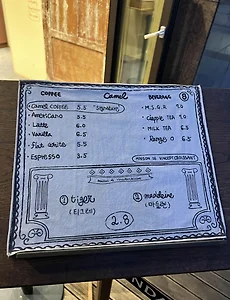 COFFEE
Camel
BEVERAGES
CAMEL COFFEE 5.5 "Signature"
· Americano 5.5
· Latte 6.0
· Vanilla 6.5
· flat white 5.5
· Espresso 3.5
· M.S.G.R 7.0
TEA 7.0
· MILK TEA 6.5
6.5
MAISON DE VINCENT CROISSANT
① tiger
② madeleine
(마들렌)
2.8